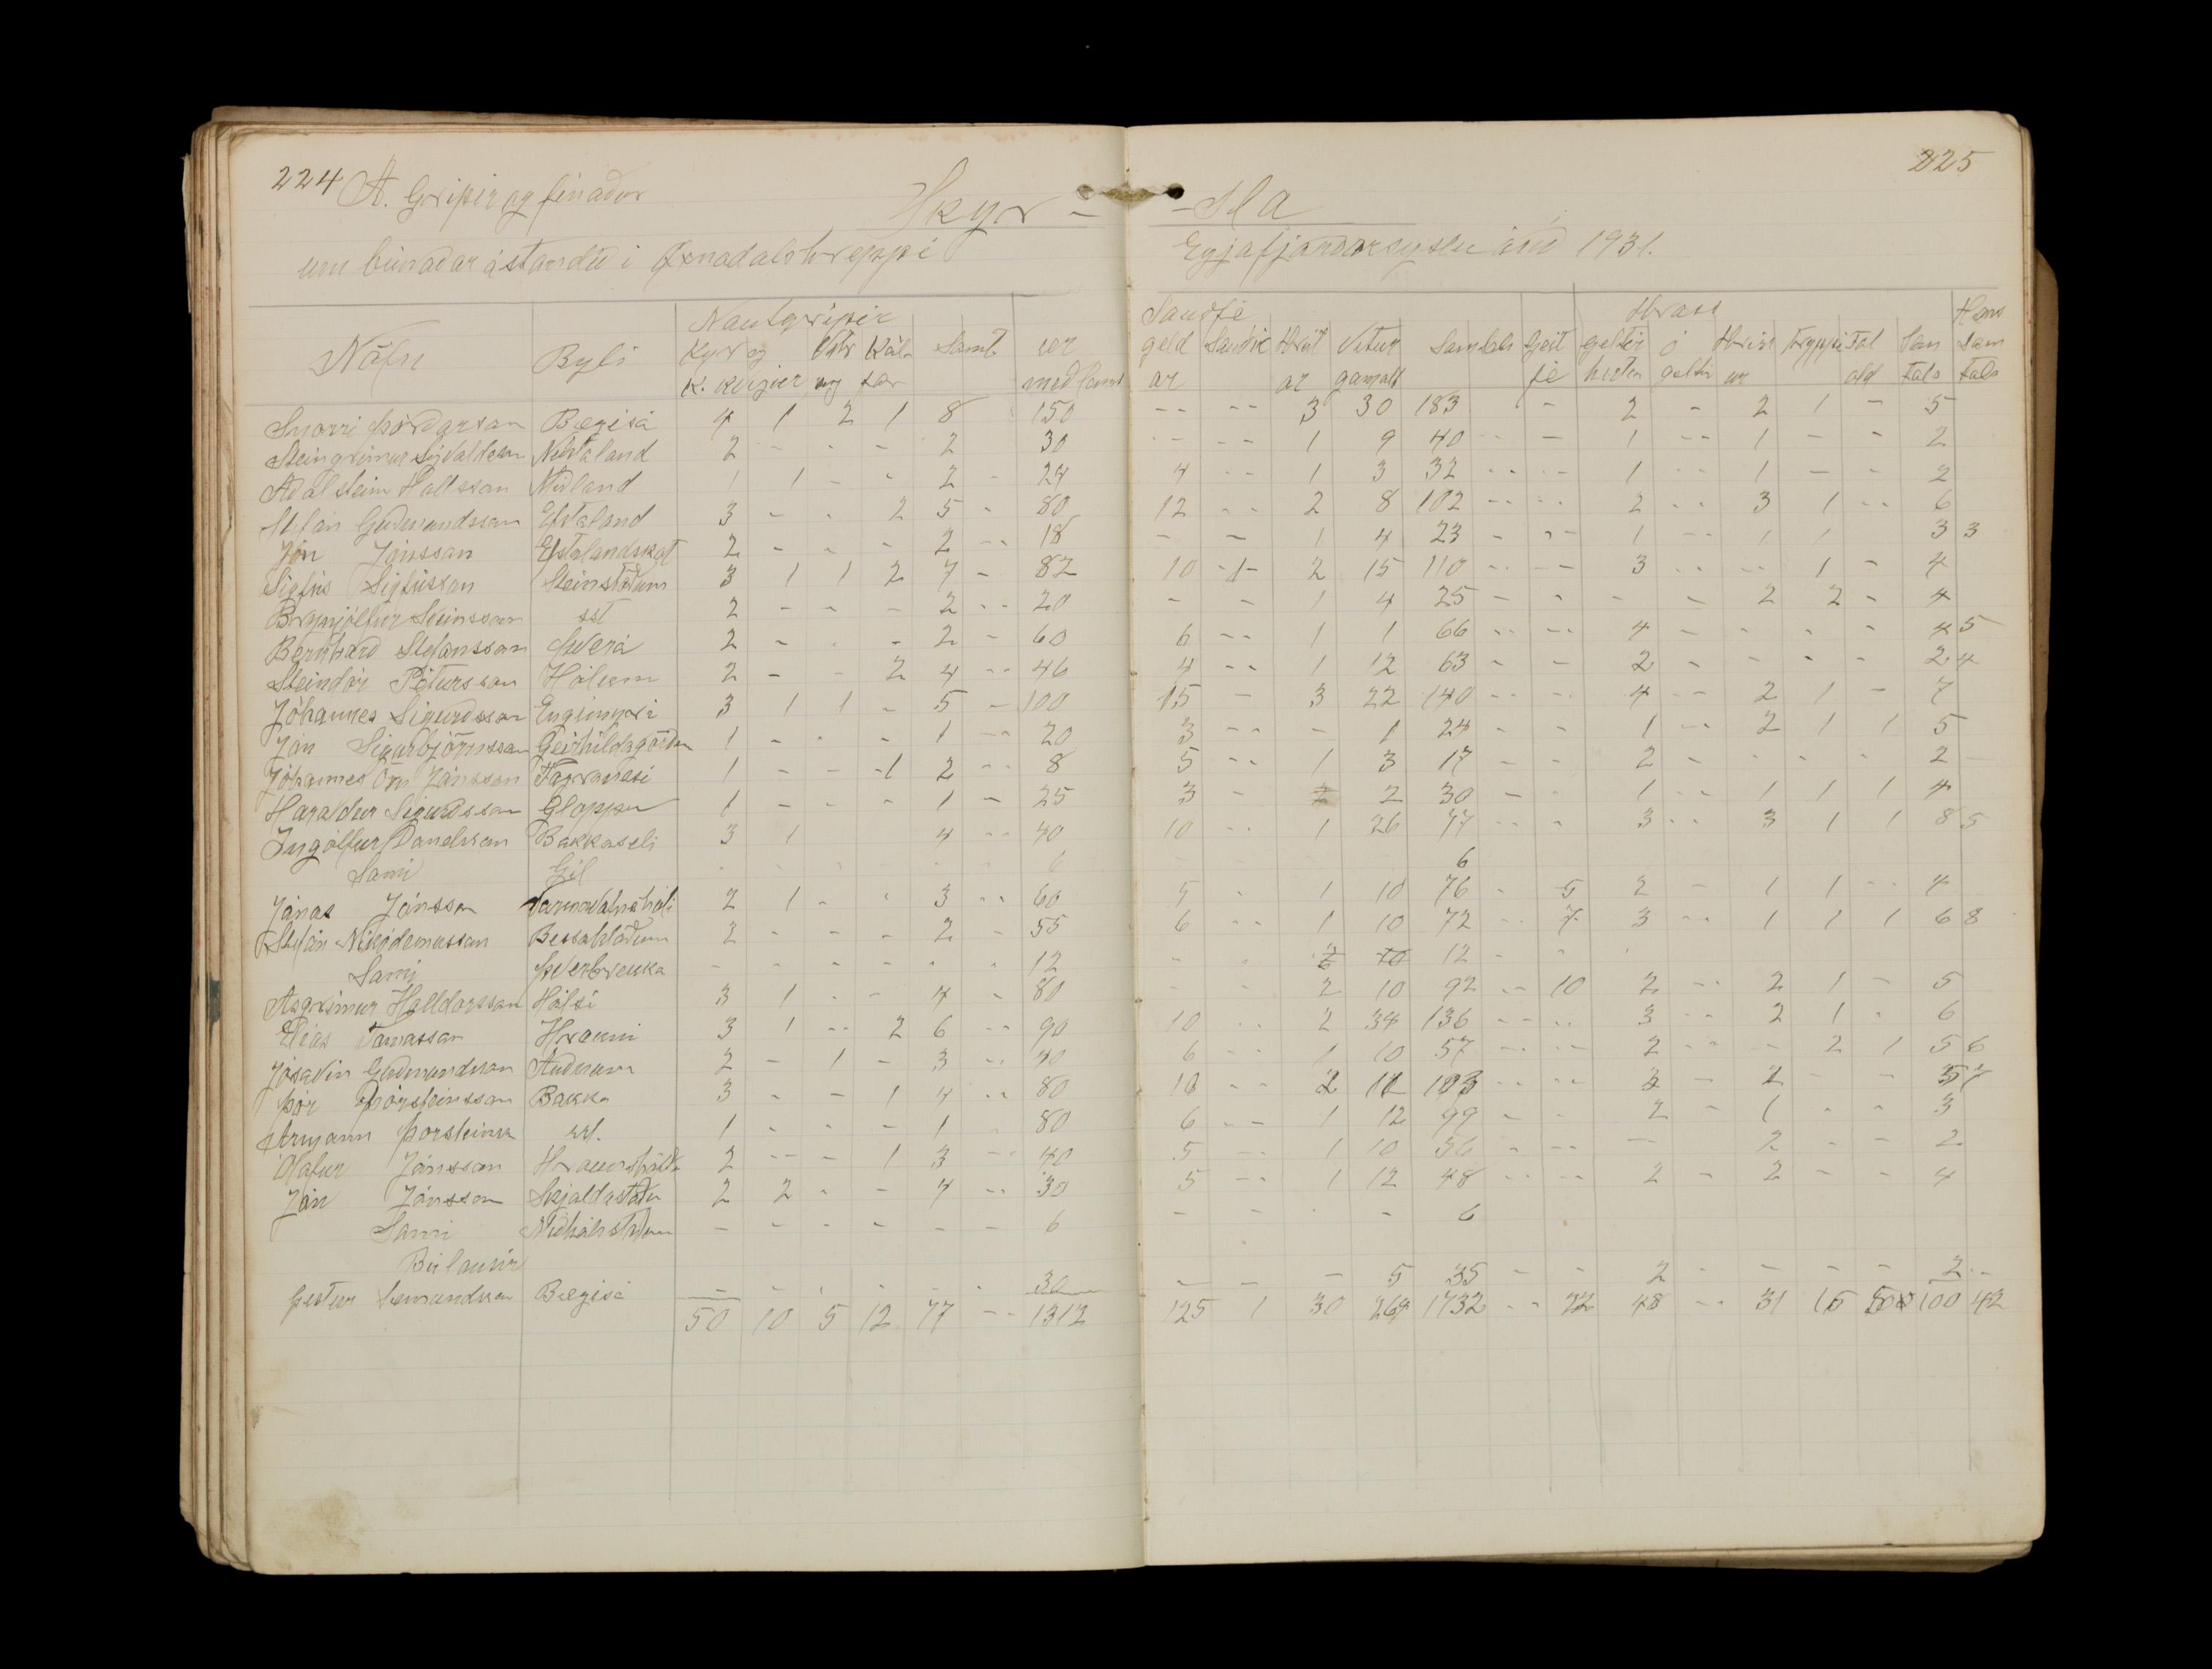 224 A. Gripir og fénaður
Skyr-
um búnaðarástandið í Öxnadalshreppi
225
-sla
Eyjafjarðarsýslu árið 1931.
Nautgripir
Nöfn Býli Kýr og k. kvígur Vetr ung Kálfar Samt. ær með lömb
Snorri Þórðarson Bægisá 4 1 2 1 8 150
Steingrímur Sigvaldason Neðstaland 2 - - - 2 30
Aðalsteinn Hallsson Miðland 1 1 - - 2 - 24
Stefán Guðmundsson Efstaland 3 - - 2 5 - 80
Jón Jónsson Efstalandskot 2 - - - 2 -- 18
Sigfús Sigfússon Steinstöðum 3 1 1 2 7 - 82
Brynjólfur Sveinsson sst 2 - - - 2 -- 20
Bernharð Stefánsson Þverá 2 - - - 2 - 60
Steindór Pétursson Hólum 2 - - 2 4 -- 46
Jóhannes Sigurðsson Engimýri 3 1 1 - 5 - 100
Jón Sigurbjörnsson Geirhildagörðum 1 - - - 1 -- 20
Jóhannes Örn Jónsson Fagranesi 1 - - 1 2 -- 8
Haraldur Sigurðsson Gloppu 1 - - - 1 - 25
Ingólfur Daníelsson Bakkaseli 3 1 4 -- 40
Sami Gil - - - - - - 6
Jónas Jónsson 2 1 - - 3 -- 60
Stefán Nikódemusson Bessahlöðum 2 - - - 2 - 55
Sami Þverbrekka - - - - - - 12
Ásgrímur Halldórsson Hólsi 3 1 - - 4 - 80
Elías Tómasson Hrauni 3 1 -- 2 6 -- 90
Jósavin Guðmundsson Auðnum 2 - 1 - 3 -- 40
Þór Þorsteinsson Bakka 3 - - 1 4 -- 80
Ármann Þorsteinss sst. 1 - - - 1 - 80
Ólafur Jónsson Hraunshöfða 2 -- - 1 3 -- 40
Jón Jónsson Skjaldastöðu 2 2 - - 4 -- 30
Sami - - - - - - 6
Búlausir
Gestur Sæmundsson Bægisá - - - - - - 30
50 10 5 12 77 -- 1312
Sauðfé Hross Hæns
geld ar Sauðir Hrút ar Vetur gamalt Samtals Geit fé geltir hestar ó geltir Hriss ur Tryppi Fol old Sam tals sam tals
-- -- 3 30 183 - 2 - 2 1 - 5
-- -- 1 9 40 -- - 1 -- 1 - - 2
4 -- 1 3 32 -- -- 1 -- 1 - - 2
12 -- 2 8 102 -- -- 2 -- 3 1 -- 6
- - 1 4 23 - -- 1 -- 1 1 3 3
10 1 2 15 110 -- -- 3 -- -- 1 - 4
- - 1 4 25 - - - - 2 2 - 4
6 -- 1 1 66 -- -- 4 - - - - 4 5
4 -- 1 12 63 - - 2 - - - - 2 4
15 - 3 22 140 -- - 4 -- 2 1 - 7
3 -- - 1 24 - - 1 -- 2 1 1 5
5 -- 1 3 17 - - 2 - - - - 2
3 - 2 30 - - 1 -- 1 1 1 4
10 -- 1 26 77 -- - 3 -- 3 1 1 8 5
- - 6
5 - 1 10 76 - 5 2 - 1 1 -- 4
6 -- 1 10 72 -- 7 3 -- 1 1 1 6 8
- - 12 - -
- - 2 10 92 -- 10 2 -- 2 1 - 5
10 -- 2 34 136 -- -- 3 -- 2 1 - 6
6 -- 1 10 57 -- -- 2 -- - 2 1 5 6
10 -- 2 11 103 -- -- 3 - 2 - - 5 7
6 -- 1 12 99 - - 2 - 1 - - 3
5 -- 1 10 56 - -- - 2 - - 2
5 -- 1 12 48 -- -- 2 - 2 - - 4
- - - - 6
- - - 5 35 - - 2 - - - - 2 --
125 1 30 264 1732 -- 22 48 -- 31 16 100 42